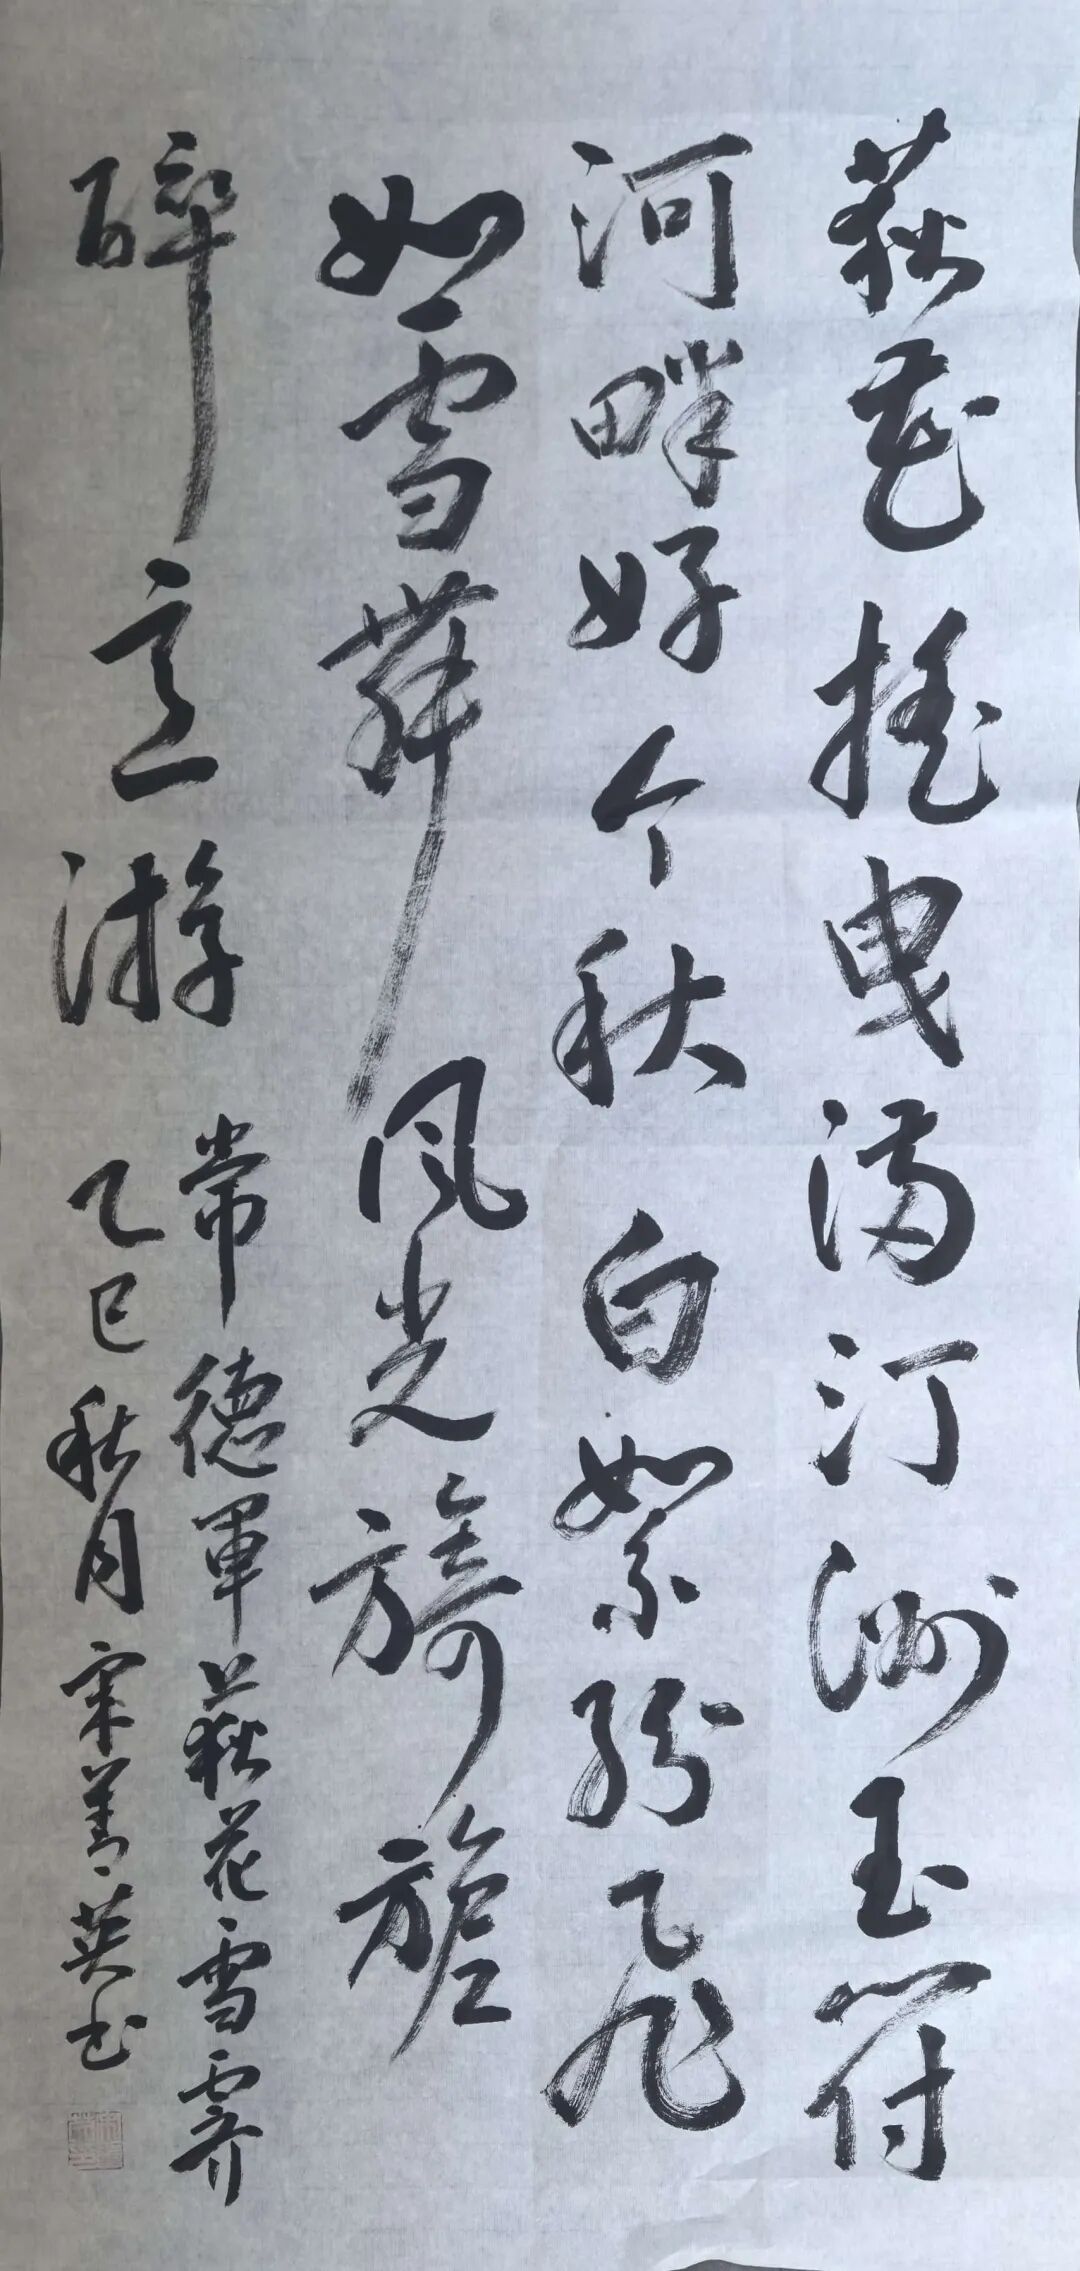 荻花摇曳满汀洲玉符
河畔好个秋白如絮纷飞
如雪舞风光旖旎
醉意游
常德军荻花雪霁
乙巳秋月宋菁英书